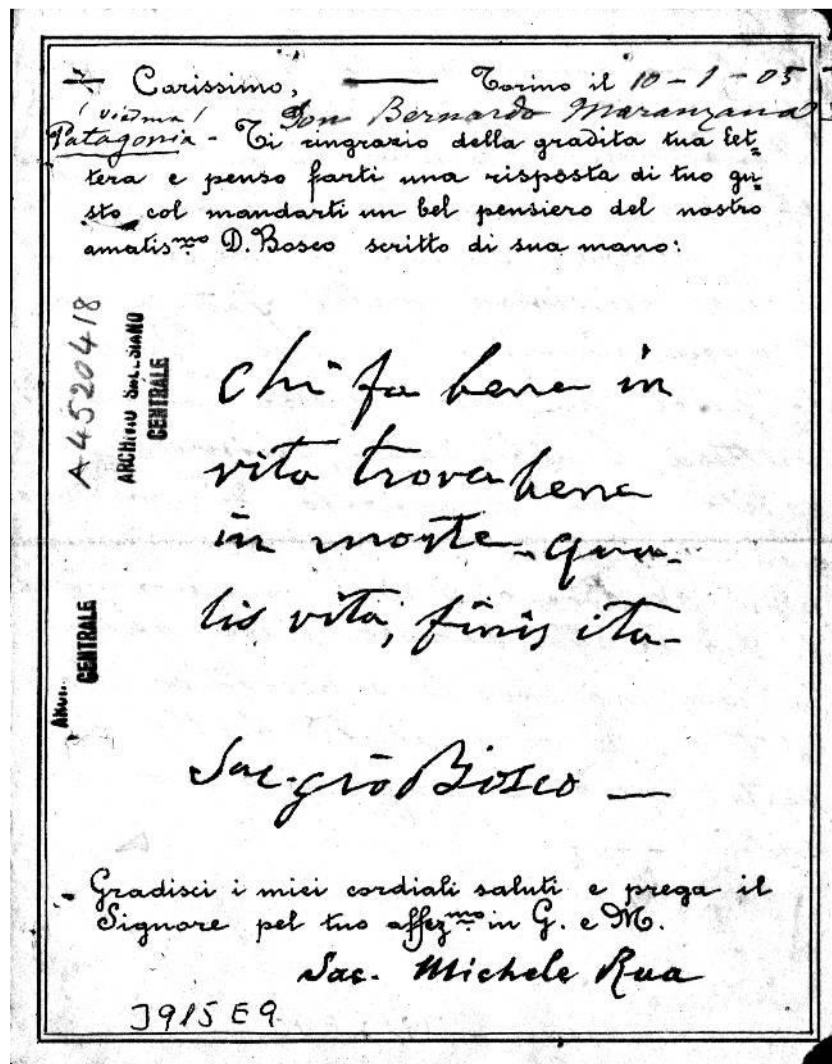 Carissimo, Torino il 10-1-05
(Viedma) Don Bernardo Maranzana
Patagonia - Ti ringrazio della gradita tua let=
tera e penso farti una risposta di tuo gu=
sto col mandarti un bel pensiero del nostro
amatis.mo D. Bosco scritto di sua mano:
A 4520418
ARCHIVIO SALESIANO
CENTRALE
Chi fa bene in
vita trova bene
in morte - qua-
lis vita, finis ita -
CENTRALE
Sac. Gio Bosco —
Gradisci i miei cordiali saluti e prega il
Signore pel tuo affez.mo in G. e M.
Sac. Michele Rua
3915 E 9